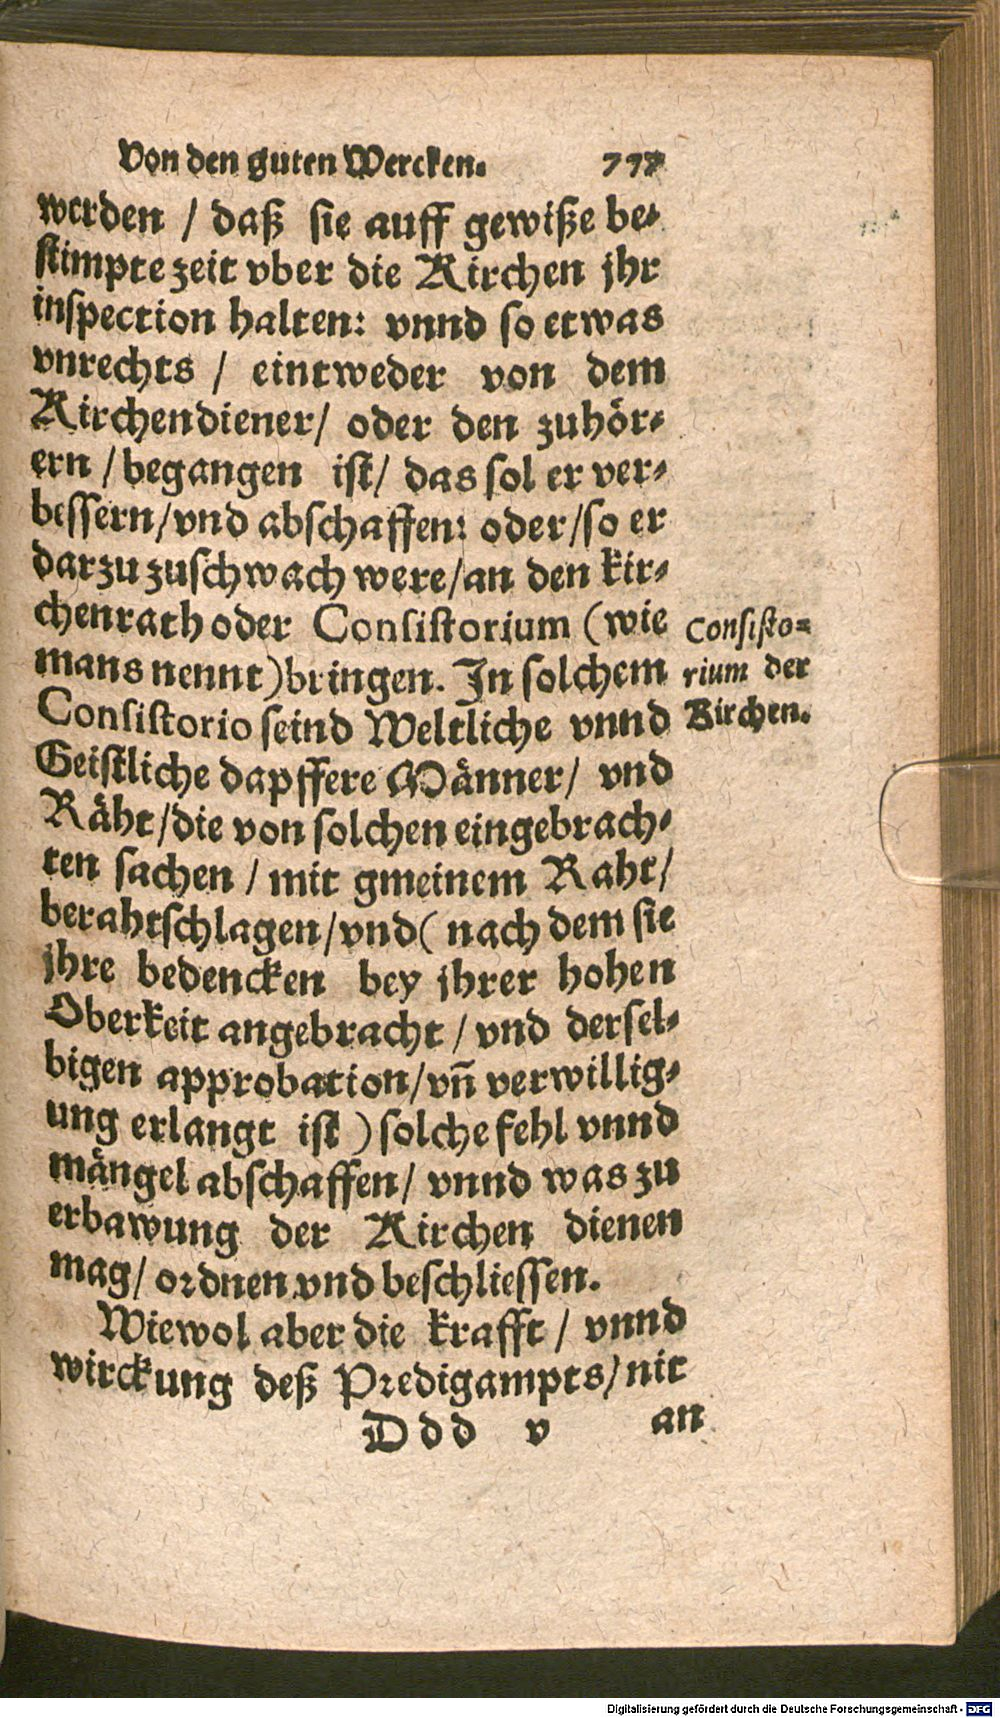 Von den guten Wercken. 777
werden / daß sie auff gewiße be⸗
stimpte zeit vber die Kirchen jhr
inspection halten: vnnd so etwas
vnrechts / eintweder von dem
Kirchendiener / oder den zuhör⸗
ern / begangen ist / das sol er ver⸗
bessern / vnd abschaffen: oder / so er
darzu zuschwach were / an den kir⸗
chenrath oder Consistorium (wie
mans nennt) bringen. In solchem
Consistorio seind Weltliche vnnd
Geistliche dapffere Männer / vnd
Räht / die von solchen eingebrach⸗
ten sachen / mit gmeinem Raht /
berahtschlagen / vnd ( nach dem sie
jhre bedencken bey jhrer hohen
Oberkeit angebracht / vnd dersel⸗
bigen approbation / vñ verwillig⸗
ung erlangt ist ) solche fehl vnnd
mängel abschaffen / vnnd was zu
erbawung der Kirchen dienen
mag / ordnen vnd beschliessen.
Wiewol aber die krafft / vnnd
wirckung deß Predigampts / nit
Ddd v an
Consisto⸗
rium der
Kirchen.
Digitalisierung gefördert durch die Deutsche Forschungsgemeinschaft - DFG